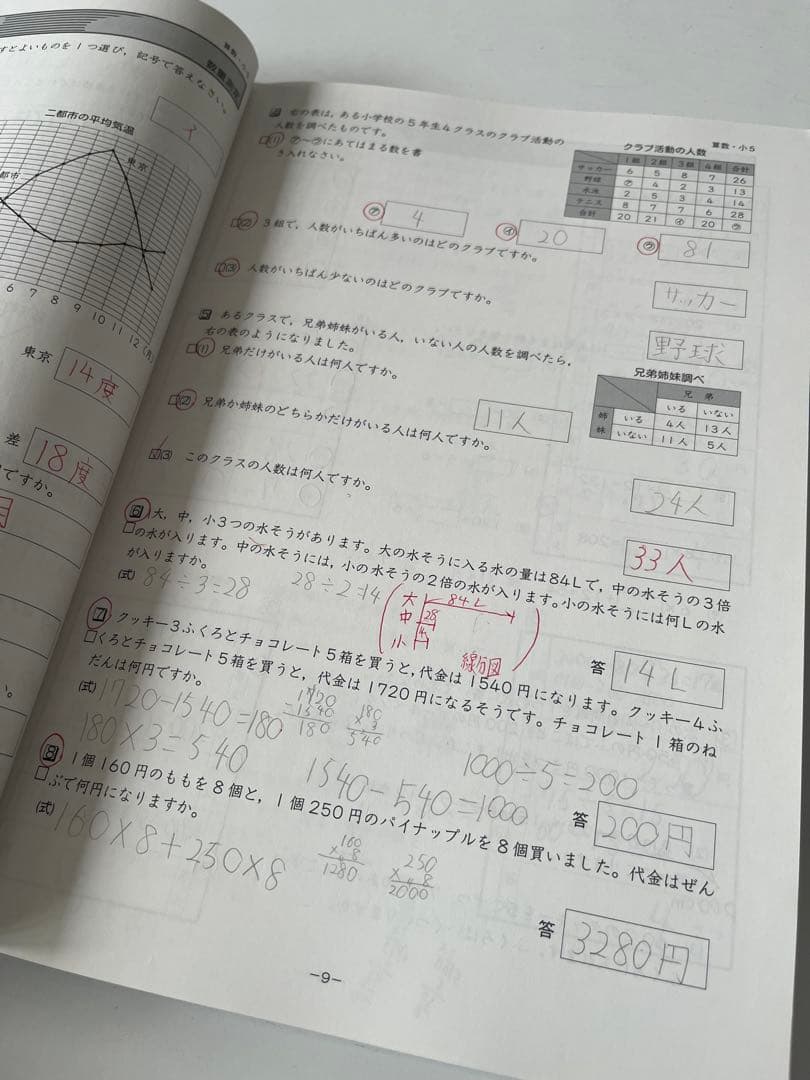 すとよいものを1つ選び，記号で答えなさい。
算数・小5
二都市の平均気温
東京
都市
6 7 8 9 10 11 12(月)
東京
14度
差
18度
ですか。
算数・小5
4 右の表は，ある小学校の5年生4クラスのクラブ活動の
人数を調べたものです。
(1) ㋐〜㋒にあてはまる数を書
き入れなさい。
クラブ活動の人数
1組 2組 3組 4組 合計
サッカー 6 5 8 7 26
野球 ㋐ 4 2 3 13
水泳 2 5 3 4 14
テニス 8 7 7 6 28
合計 20 21 ㋑ 20 ㋒
㋐ 4
㋑ 20
㋒ 81
(2) 3組で，人数がいちばん多いのはどのクラブですか。
サッカー
(3) 人数がいちばん少ないのはどのクラブですか。
野球
5 あるクラスで，兄弟姉妹がいる人，いない人の人数を調べたら，
右の表のようになりました。
(1) 兄弟だけがいる人は何人ですか。
11人
兄弟姉妹調べ
兄弟
いる いない
姉妹 いる 4人 13人
いない 11人 5人
(2) 兄弟か姉妹のどちらかだけがいる人は何人ですか。
24人
(3) このクラスの人数は何人ですか。
33人
6 大，中，小3つの水そうがあります。大の水そうに入る水の量は84Lで，中の水そうの3倍
の水が入ります。中の水そうには，小の水そうの2倍の水が入ります。小の水そうには何Lの水
が入りますか。
(式) 84÷3=28
28÷2=14
大 84L
中 28
小
線分図
答 14L
7 クッキー3ふくろとチョコレート5箱を買うと，代金は1540円になります。クッキー4ふ
くろとチョコレート5箱を買うと，代金は1720円になるそうです。チョコレート1箱のね
だんは何円ですか。
(式) 1720-1540=180
1720
1540
180
180
×3
540
180×3=540
1540-540=1000
1000÷5=200
答 200円
8 1個160円のももを8個と，1個250円のパイナップルを8個買いました。代金はぜん
ぶで何円になりますか。
(式) 160×8+250×8
160
×8
1280
250
×8
2000
答 3280円
-9-